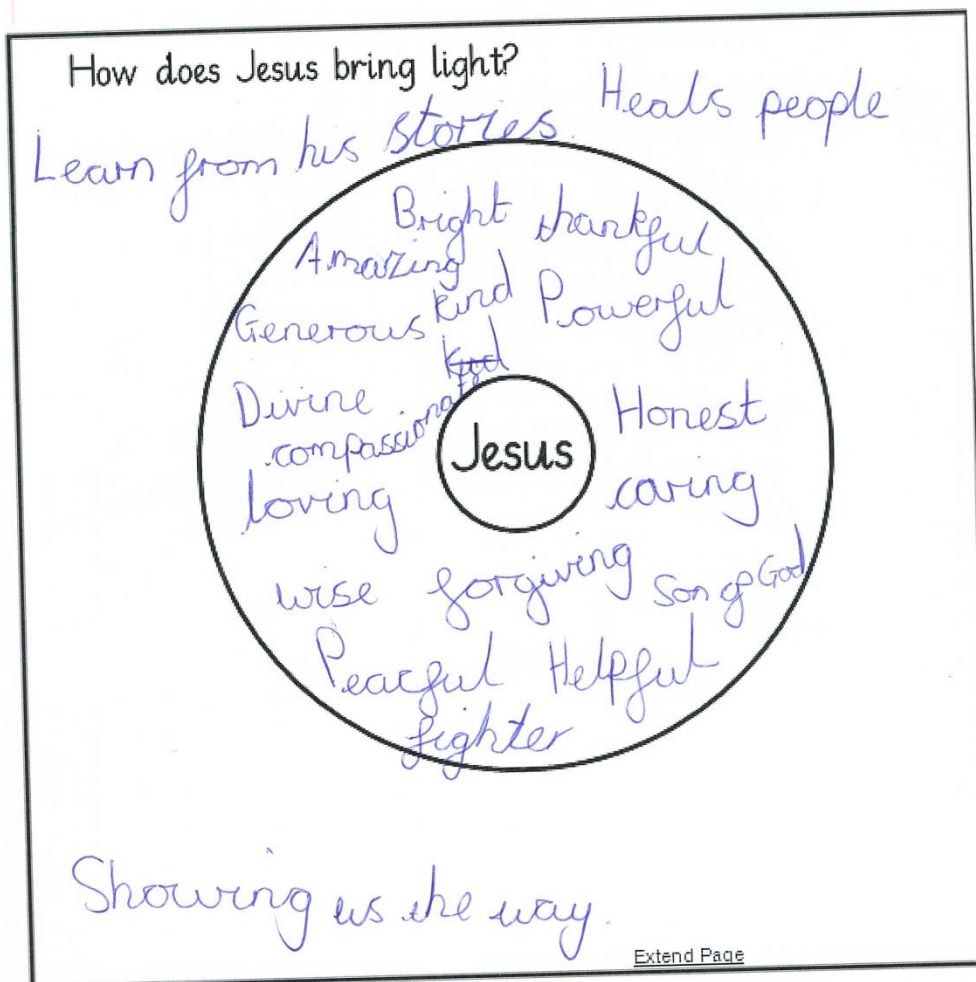 How does Jesus bring light?
Learn from his stories. Heals people
Bright thankful
Amazing
Generous kind Powerful
Divine
compassionate
Jesus
Honest
loving
caring
wise forgiving Son of God
Peacful Helpful
fighter
Showing us the way.
Extend Page